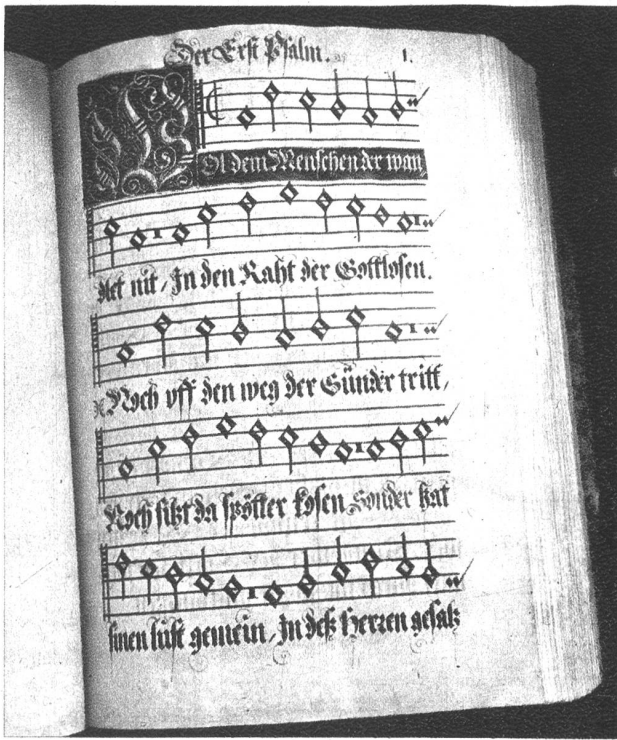 Der Erst Psalm. 1.
WOl dem Menschen der wan,
dlet nit, In den Raht der Gottlosen.
Noch vff den weg der Sünder tritt,
Noch sitzt da spötter kosen Sonder hat
sinen lust gemein, In deß Herren gesatz